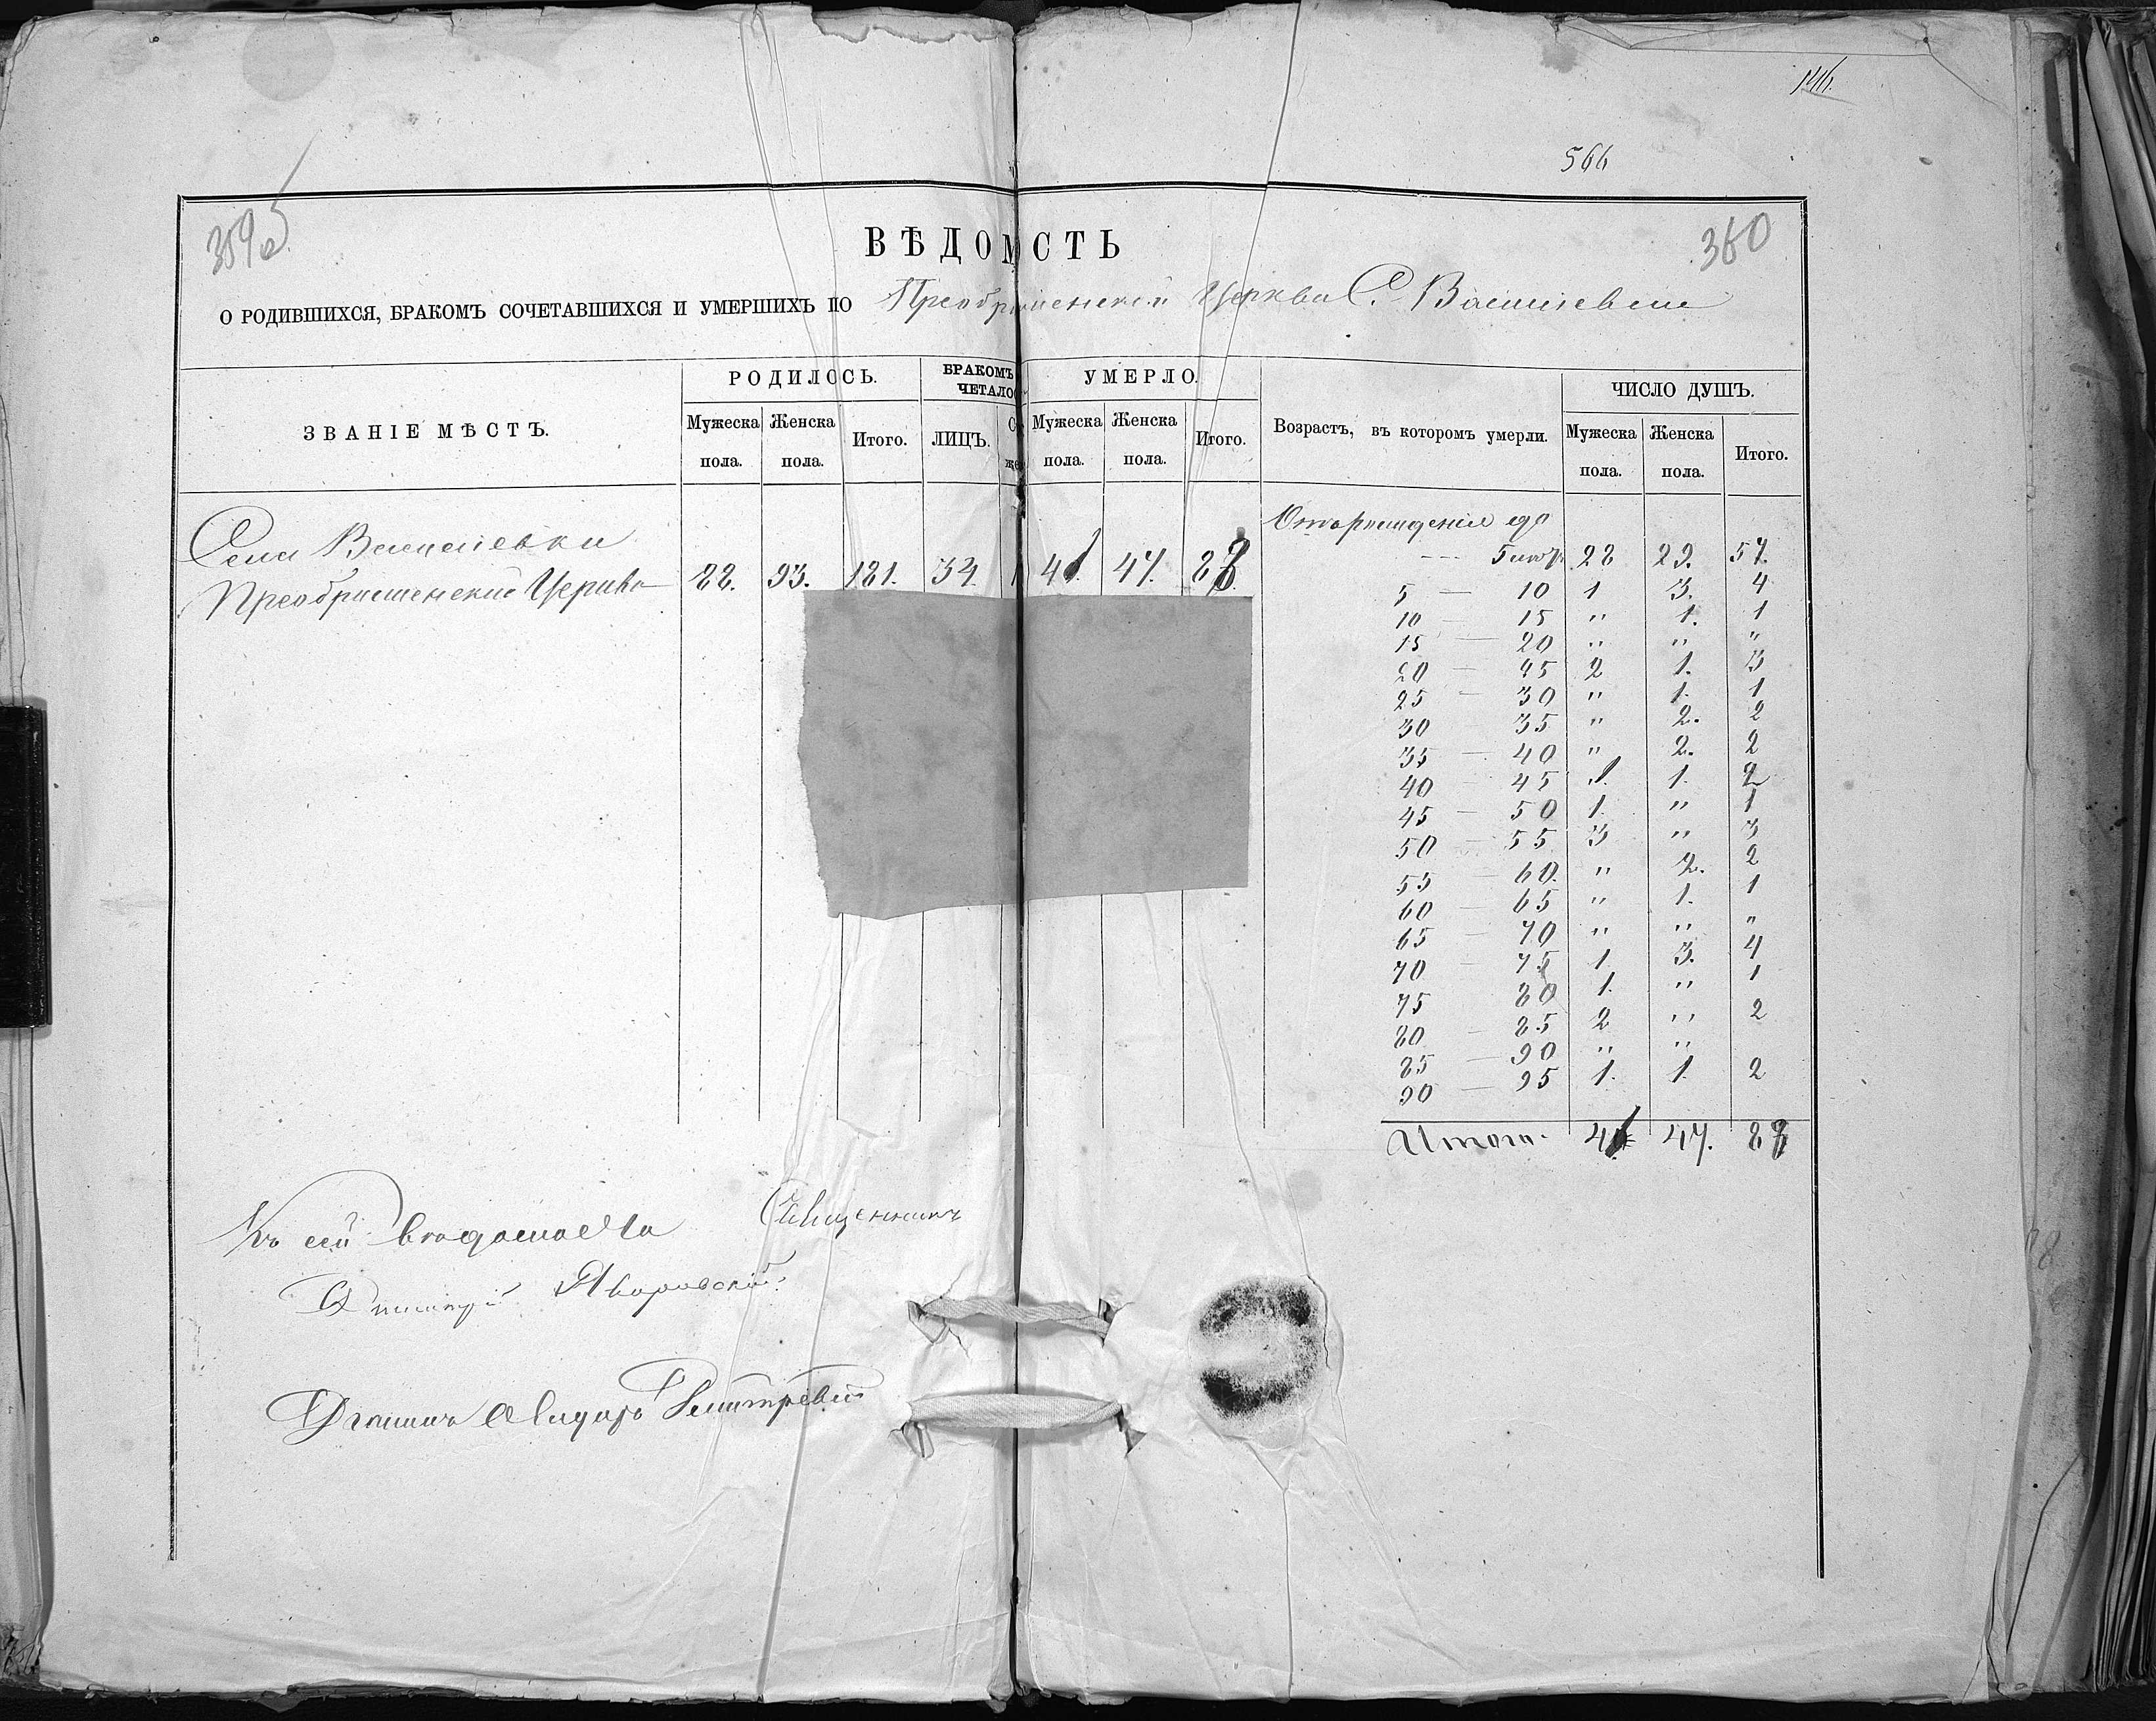 146.
566
359об.
360
ВѢДОМОСТЬ
О РОДИВШИХСЯ, БРАКОМЪ СОЧЕТАВШИХСЯ И УМЕРШИХЪ ПО Преображенской Церкви С. Василевки
ЗВАНІЕ МѢСТЪ. РОДИЛОСЬ. БРАКОМЪ ЧЕТАЛО УМЕРЛО. Возрастъ, въ которомъ умерли. ЧИСЛО ДУШЪ.
Мужеска пола. Женска пола. Итого. ЛИЦЪ. Мужеска пола. Женска пола. Итого. Мужеска пола. Женска пола. Итого.
Села Василевки
Преображенской Церкви 88. 93. 181. 34. 41. 47. 88.
Отъ рожденія до
5 28 29. 57.
5 — 10 1 3. 4
10 — 15 " 1. 1
15 — 20 " " "
20 — 25 2 1. 3
25 — 30 " 1. 1
30 — 35 " 2. 2
35 — 40 " 2. 2
40 — 45 1. 1. 2
45 — 50 1. " 1
50 — 55 3 " 3
55 — 60. " 2. 2
60 — 65 " 1. 1
65 — 70 " " "
70 — 75 1. 3. 4
75 80 1. " 1
80 — 85 2 " 2
85 — 90 " "
90 — 95 1. 1. 2
Итого. 41 47. 88
Къ сей Священникъ
Яворовскій
Дмитріевъ